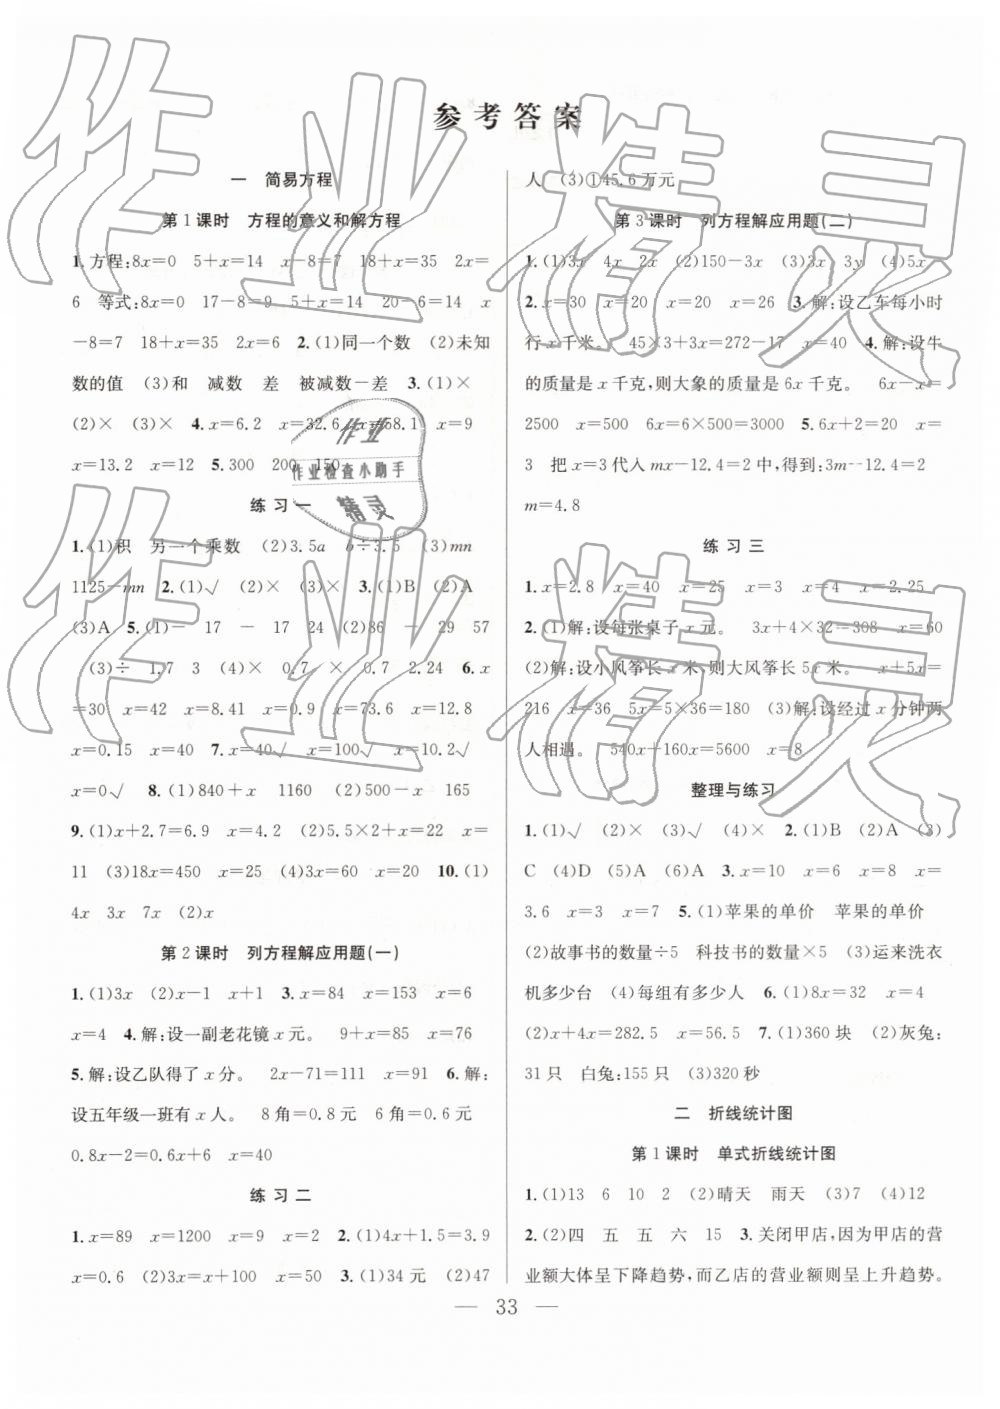 参考答案
一 简易方程
第1课时 方程的意义和解方程
1.方程:8x=0 5+x=14 x-8=7 18+x=35 2x=
6 等式:8x=0 17-8=9 5+x=14 20-6=14 x
-8=7 18+x=35 2x=6 2.(1)同一个数 (2)未知
数的值 (3)和 减数 差 被减数-差 3.(1)×
(2)× (3)× 4.x=6.2 x=32.6 x=58.1 x=9
x=13.2 x=12 5.300 200 150
练习一
1.(1)积 另一个乘数 (2)3.5a b÷3.5 (3)mn
1125-mn 2.(1)√ (2)× (3)× 3.(1)C (2)A
(3)A 5.(1)- 17 - 17 24 (2)86 - 29 57
(3)÷ 1.7 3 (4)× 0.7 × 0.7 2.24 6.x
=30 x=42 x=8.41 x=0.9 x=73.6 x=12.8
x=0.15 x=40 7.x=40√ x=100√ x=40√
x=0√ 8.(1)840+x 1160 (2)500-x 165
9.(1)x+2.7=6.9 x=4.2 (2)5.5×2+x=22 x=
11 (3)18x=450 x=25 (4)3x=60 x=20 10.(1)
4x 3x 7x (2)x
第2课时 列方程解应用题(一)
1.(1)3x (2)x-1 x+1 3.x=84 x=153 x=6
x=4 4.解:设一副老花镜x元。 9+x=85 x=76
5.解:设乙队得了x分。 2x-71=111 x=91 6.解:
设五年级一班有x人。 8角=0.8元 6角=0.6元
0.8x-2=0.6x+6 x=40
练习二
1.x=89 x=1200 x=30 2.(1)4x+1.5=3.9
x=0.6 (2)3x=x+100 x=50 3.(1)34元 (2)47
人 (3)①45.6万元
第3课时 列方程解应用题(二)
1.(1)3x 4x 2x (2)150-3x (3)3x 3y (4)5x
2.x=30 x=20 x=20 x=26 3.解:设乙车每小时
行x千米。 45×3+3x=272-17 x=40 4.解:设牛
的质量是x千克,则大象的质量是6x千克。 6x-x=
2500 x=500 6x=6×500=3000 5.6x+2=20 x=
3 把x=3代人mx-12.4=2中,得到:3m-12.4=2
m=4.8
练习三
1.x=2.8 x=40 x=25 x=3 x=4 x=2.25
2.(1)解:设每张桌子x元。 3x+4×32=308 x=60
(2)解:设小风筝长x米,则大风筝长5x米。 x+5x=
216 x=36 5x=5×36=180 (3)解:设经过x分钟两
人相遇。 540x+160x=5600 x=8
整理与练习
1.(1)√ (2)× (3)√ (4)× 2.(1)B (2)A (3)
C (4)D (5)A (6)A 3.x=10 x=6 x=8 x=
3.6 x=3 x=6 5.(1)苹果的单价 苹果的单价
(2)故事书的数量÷5 科技书的数量×5 (3)运来洗衣
机多少台 (4)每组有多少人 6.(1)8x=32 x=4
(2)x+4x=282.5 x=56.5 7.(1)360块 (2)灰兔:
31只 白兔:155只 (3)320秒
二 折线统计图
第1课时 单式折线统计图
1.(1)13 6 10 2 (2)晴天 雨天 (3)7 (4)12
2.(2)四 五 五 六 15 3.关闭甲店,因为甲店的营
业额大体呈下降趋势,而乙店的营业额则呈上升趋势。
— 33 —
作业精灵
作业精灵
作业
作业检查小助手
精灵